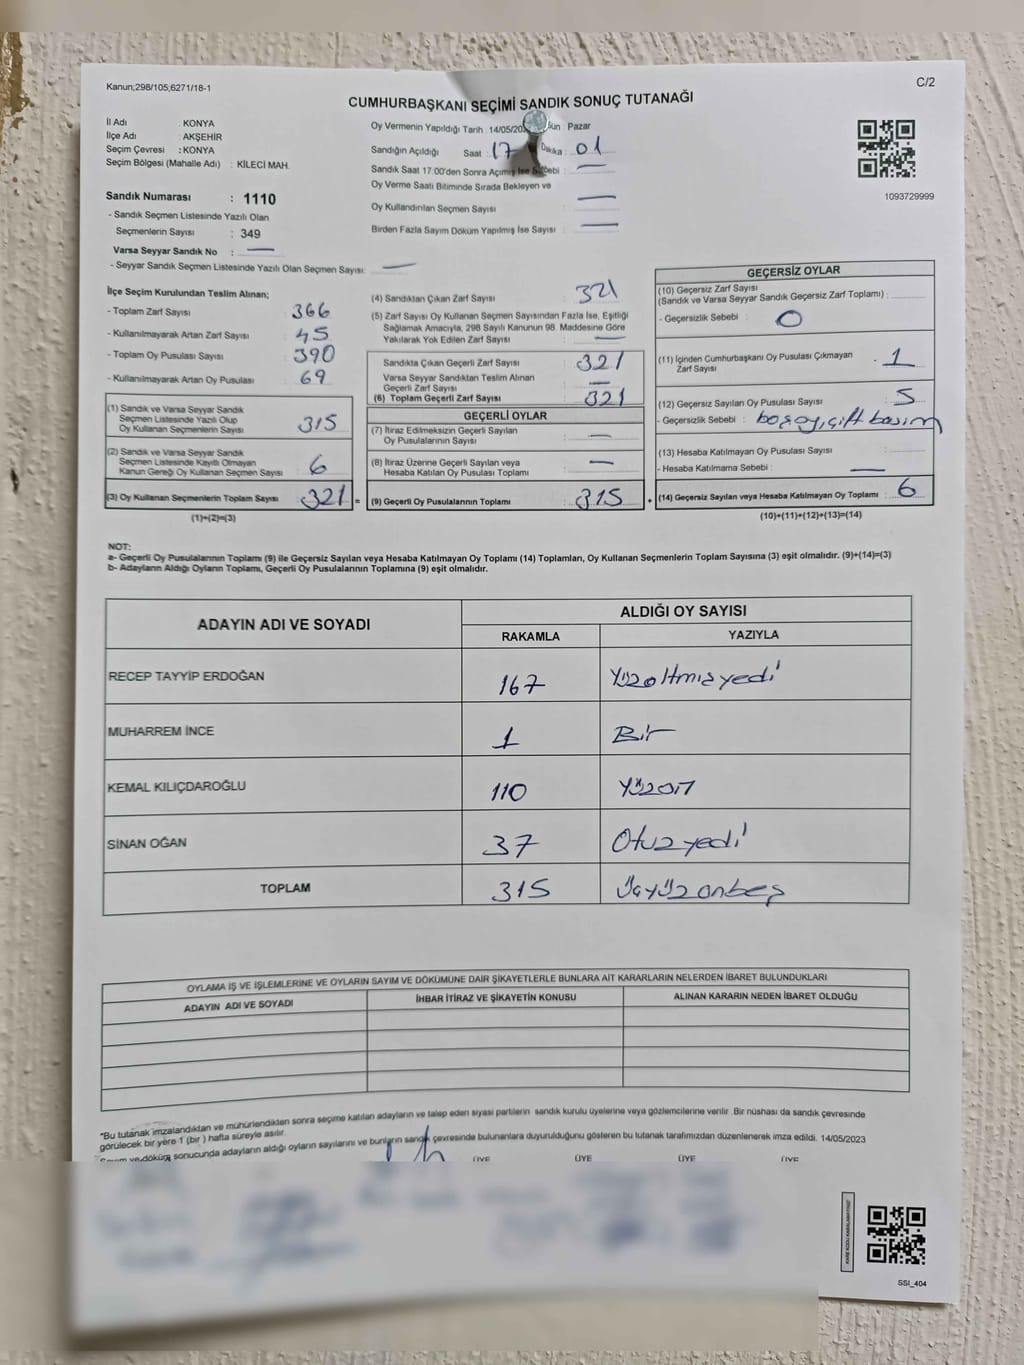 Kanun;298/105;6271/18-1
C/2
CUMHURBAŞKANI SEÇİMİ SANDIK SONUÇ TUTANAĞI
İl Adı : KONYA
İlçe Adı : AKŞEHİR
Seçim Çevresi : KONYA
Seçim Bölgesi (Mahalle Adı) : KİLECİ MAH.
Oy Vermenin Yapıldığı Tarih : 14/05/20 Pazar
Sandığın Açıldığı Saat : 17 Dakika : 01
Sandık Saat 17:00'den Sonra Açmış İse Sebebi : —
Oy Verme Saati Bitiminde Sırada Bekleyen ve
Oy Kullandırılan Seçmen Sayısı —
Birden Fazla Sayım Döküm Yapılmış İse Sayısı : —
1093729999
Sandık Numarası : 1110
- Sandık Seçmen Listesinde Yazılı Olan
Seçmenlerin Sayısı : 349
Varsa Seyyar Sandık No : —
- Seyyar Sandık Seçmen Listesinde Yazılı Olan Seçmen Sayısı: —
İlçe Seçim Kurulundan Teslim Alınan;
- Toplam Zarf Sayısı : 366
- Kullanılmayarak Artan Zarf Sayısı : 45
- Toplam Oy Pusulası Sayısı : 390
- Kullanılmayarak Artan Oy Pusulası : 69
(1) Sandık ve Varsa Seyyar Sandık
Seçmen Listesinde Yazılı Olup
Oy Kullanan Seçmenlerin Sayısı : 315
(2) Sandık ve Varsa Seyyar Sandık
Seçmen Listesinde Kayıtlı Olmayan
Kanun Gereği Oy Kullanan Seçmen Sayısı : 6
(3) Oy Kullanan Seçmenlerin Toplam Sayısı : 321 =
(1)+(2)=(3)
(4) Sandıktan Çıkan Zarf Sayısı : 321
(5) Zarf Sayısı Oy Kullanan Seçmen Sayısından Fazla İse, Eşitliği
Sağlamak Amacıyla, 298 Sayılı Kanunun 98. Maddesine Göre
Yakılarak Yok Edilen Zarf Sayısı : —
Sandıkta Çıkan Geçerli Zarf Sayısı : 321
Varsa Seyyar Sandıktan Teslim Alınan
Geçerli Zarf Sayısı : —
(6) Toplam Geçerli Zarf Sayısı : 321
GEÇERLİ OYLAR
(7) İtiraz Edilmeksizin Geçerli Sayılan
Oy Pusulalarının Sayısı : —
(8) İtiraz Üzerine Geçerli Sayılan veya
Hesaba Katılan Oy Pusulası Toplamı : —
(9) Geçerli Oy Pusulalarının Toplamı : 315 +
GEÇERSİZ OYLAR
(10) Geçersiz Zarf Sayısı
(Sandık ve Varsa Seyyar Sandık Geçersiz Zarf Toplamı) :
- Geçersizlik Sebebi : 0
(11) İçinden Cumhurbaşkanı Oy Pusulası Çıkmayan
Zarf Sayısı : 1
(12) Geçersiz Sayılan Oy Pusulası Sayısı : 5
- Geçersizlik Sebebi : boş oy, çift basım
(13) Hesaba Katılmayan Oy Pusulası Sayısı :
- Hesaba Katılmama Sebebi : —
(14) Geçersiz Sayılan veya Hesaba Katılmayan Oy Toplamı : 6
(10)+(11)+(12)+(13)=(14)
NOT:
a- Geçerli Oy Pusulalarının Toplamı (9) ile Geçersiz Sayılan veya Hesaba Katılmayan Oy Toplamı (14) Toplamları, Oy Kullanan Seçmenlerin Toplam Sayısına (3) eşit olmalıdır. (9)+(14)=(3)
b- Adayların Aldığı Oyların Toplamı, Geçerli Oy Pusulalarının Toplamına (9) eşit olmalıdır.
ADAYIN ADI VE SOYADI
ALDIĞI OY SAYISI
RAKAMLA YAZIYLA
RECEP TAYYİP ERDOĞAN 167 Yüzaltmışyedi
MUHARREM İNCE 1 Bir
KEMAL KILIÇDAROĞLU 110 Yüzon
SİNAN OĞAN 37 Otuzyedi
TOPLAM 315 Üçyüzonbeş
OYLAMA İŞ VE İŞLEMLERİNE VE OYLARIN SAYIM VE DÖKÜMÜNE DAİR ŞİKAYETLERLE BUNLARA AİT KARARLARIN NELERDEN İBARET BULUNDUKLARI
ADAYIN ADI VE SOYADI İHBAR İTİRAZ VE ŞİKAYETİN KONUSU ALINAN KARARIN NEDEN İBARET OLDUĞU
*Bu tutanak imzalandıktan ve mühürlendikten sonra seçime katılan adayların ve talep eden siyasi partilerin sandık kurulu üyelerine veya gözlemcilerine verilir. Bir nüshası da sandık çevresinde
görülecek bir yere 1 (bir) hafta süreyle asılır.
Sayım ve döküm sonucunda adayların aldığı oyların sayılarını ve bunların sandık çevresinde bulunanlara duyurulduğunu gösteren bu tutanak tarafımızdan düzenlenerek imza edildi. 14/05/2023
ÜYE ÜYE ÜYE ÜYE
SSI_404